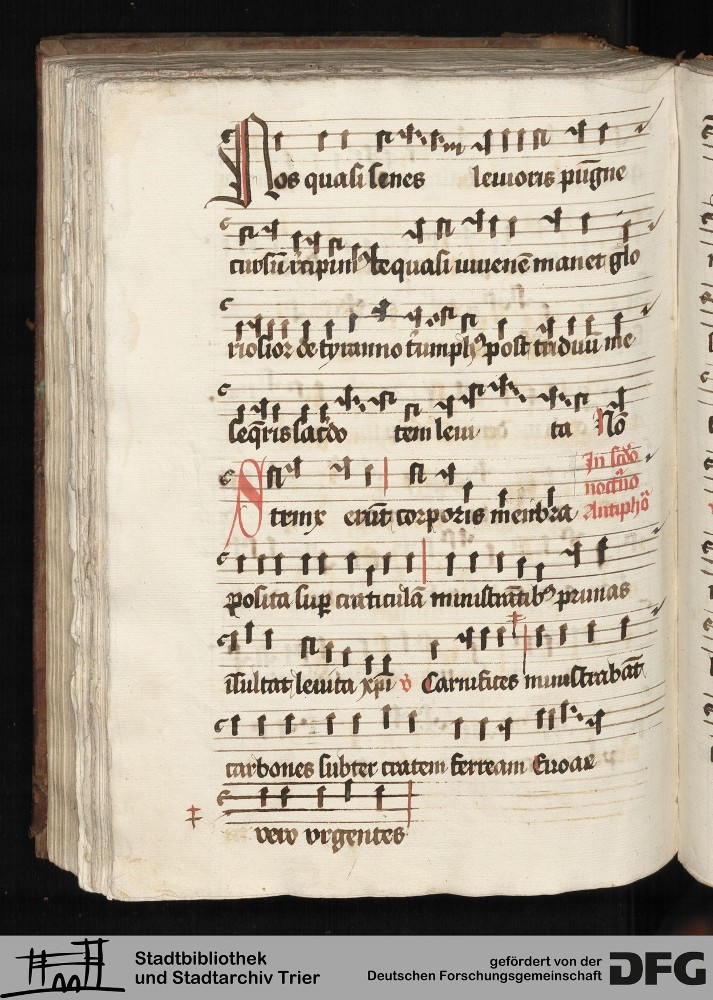 Nos quasi senes leuioris pūgne
cursū rēcipimꝰ te quasi iuuenē manet glo
riosior de tyranno triumphꝰ post triduū me
seqr̄is sacdo tem leui ta Nō
Strinx erūt corporis menbra
In scdo
noct̄no
Antipho
posita sup craticulā ministrātibꝰ prunas
īsultat leuita xp̄i v̄ Carnifices ministrabāt
carbones subter cratem ferream Euouae
vero vrgentes
Stadtbibliothek
und Stadtarchiv Trier
gefördert von der
Deutschen Forschungsgemeinschaft
DFG